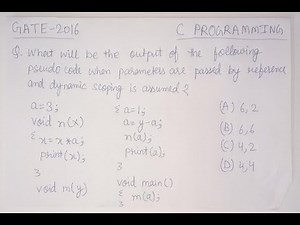 GATE-2016
C PROGRAMMING
Q. What will be the output of the following
pseudo code when parameters are passed by reference
and dynamic scoping is assumed?
a=3;
void n(x)
{ x=x*a;
print(x);
}
void m(y)
{ a=1;
a=y-a;
n(a);
print(a);
}
void main()
{
m(a);
(A) 6,2
(B) 6,6
(C) 4,2
(D) 4,4